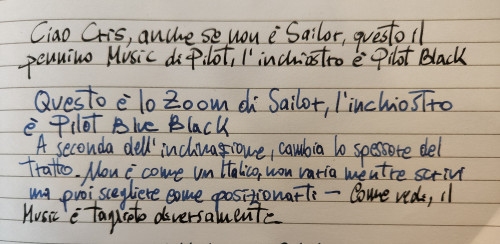 Ciao Cris, anche se non è Sailor, questo il
pennino Music di Pilot, l'inchiostro è Pilot Black
Questo è lo Zoom di Sailor, l'inchiostro
è Pilot Blue Black
A seconda dell'inclinazione, cambia lo spessore del
Tratto. Non è come un Italico, non varia mentre scrivi
ma puoi scegliere come posizionarti – Come vedi, il
Music è tagliato diversamente.